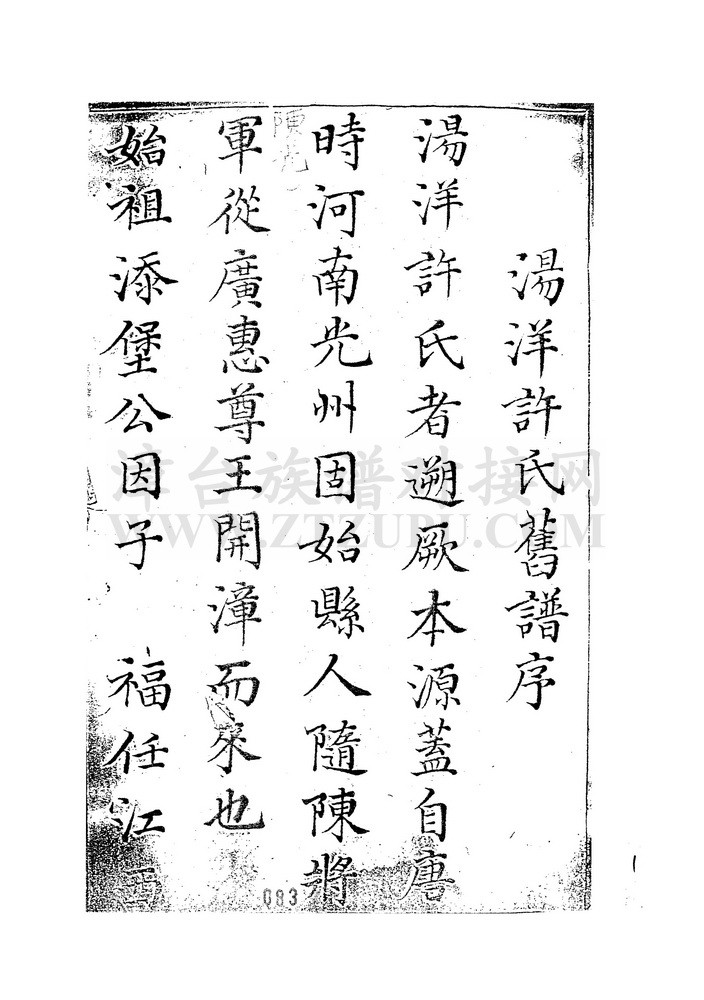 湯洋許氏舊譜序
湯洋許氏者遡厥本源蓋自唐
時河南光州固始縣人隨陳將
軍從廣惠尊王開漳而來也
始祖添堡公因子　福任江西
083
漳台族谱对接网
WWW.ZTZUPU.COM